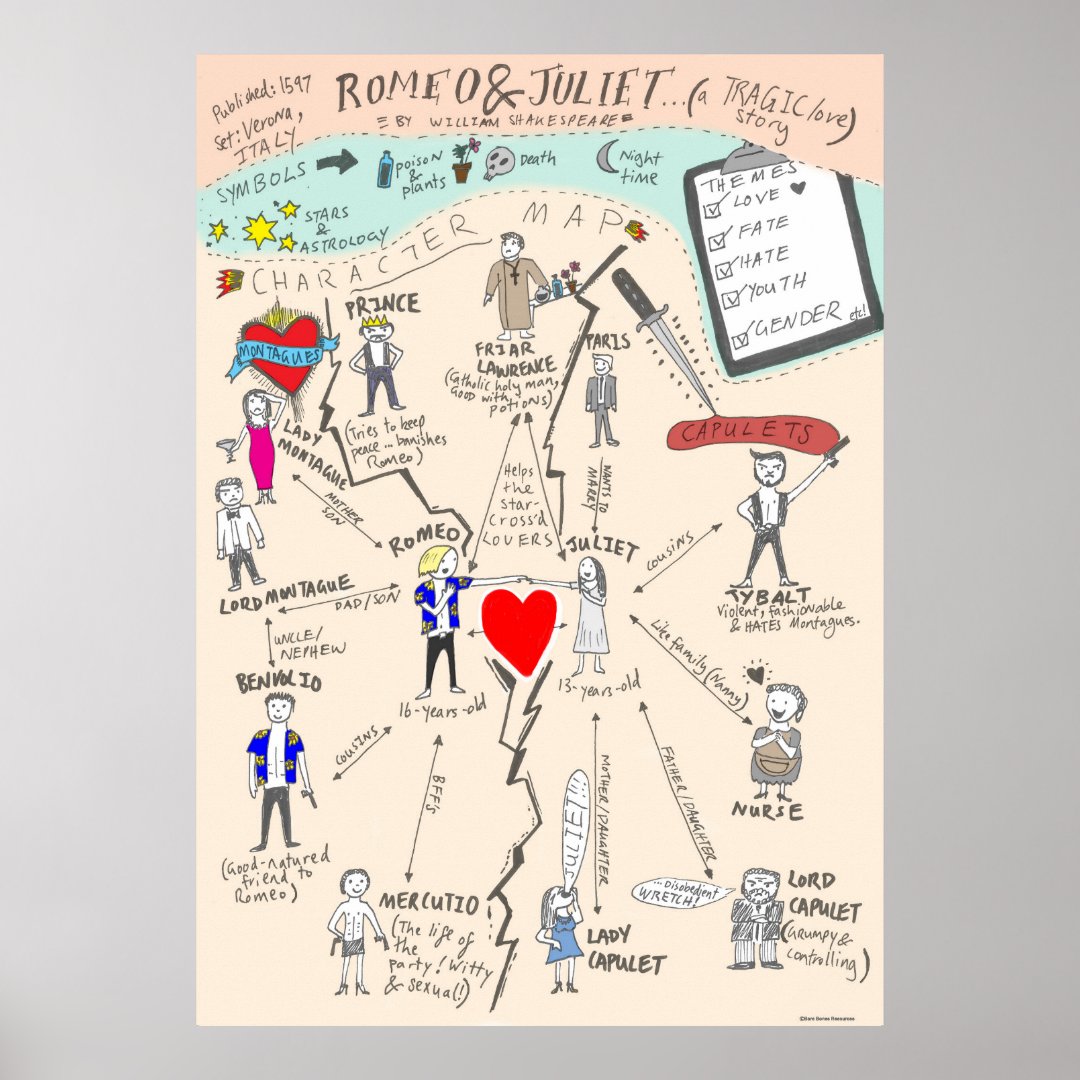 Published: 1597
Set: Verona,
ITALY
ROMEO & JULIET...(a TRAGIC love)
story
BY WILLIAM SHAKESPEARE
SYMBOLS
POISON
&
plants
Death
Night
time
STARS
&
ASTROLOGY
THEMES
LOVE
FATE
HATE
YOUTH
GENDER etc!
CHARACTER MAP
MONTAGUES
PRINCE
(Tries to keep
peace... banishes
Romeo)
FRIAR
LAWRENCE
(Catholic holy man,
Good with
potions)
PARIS
WANTS TO
MARRY
CAPULETS
LADY
MONTAGUE
MOTHER
SON
Helps
the
Star-
Cross'd
LOVERS
ROMEO
JULIET
COUSINS
TYBALT
Violent, fashionable
& HATES Montagues.
LORD MONTAGUE
DAD/SON
UNCLE/
NEPHEW
BENVOLIO
16-years-old
13-years-old
Like family (Nanny)
NURSE
COUSINS
BFF's
MOTHER/DAUGHTER
FATHER/DAUGHTER
(Good-natured
friend to
Romeo)
MERCUTIO
(The life of
the
party! Witty
& sexual!)
JULIET!...
LADY
CAPULET
...Disobedient
WRETCH!
LORD
CAPULET
(Grumpy &
controlling)
©Bare Bones Resources